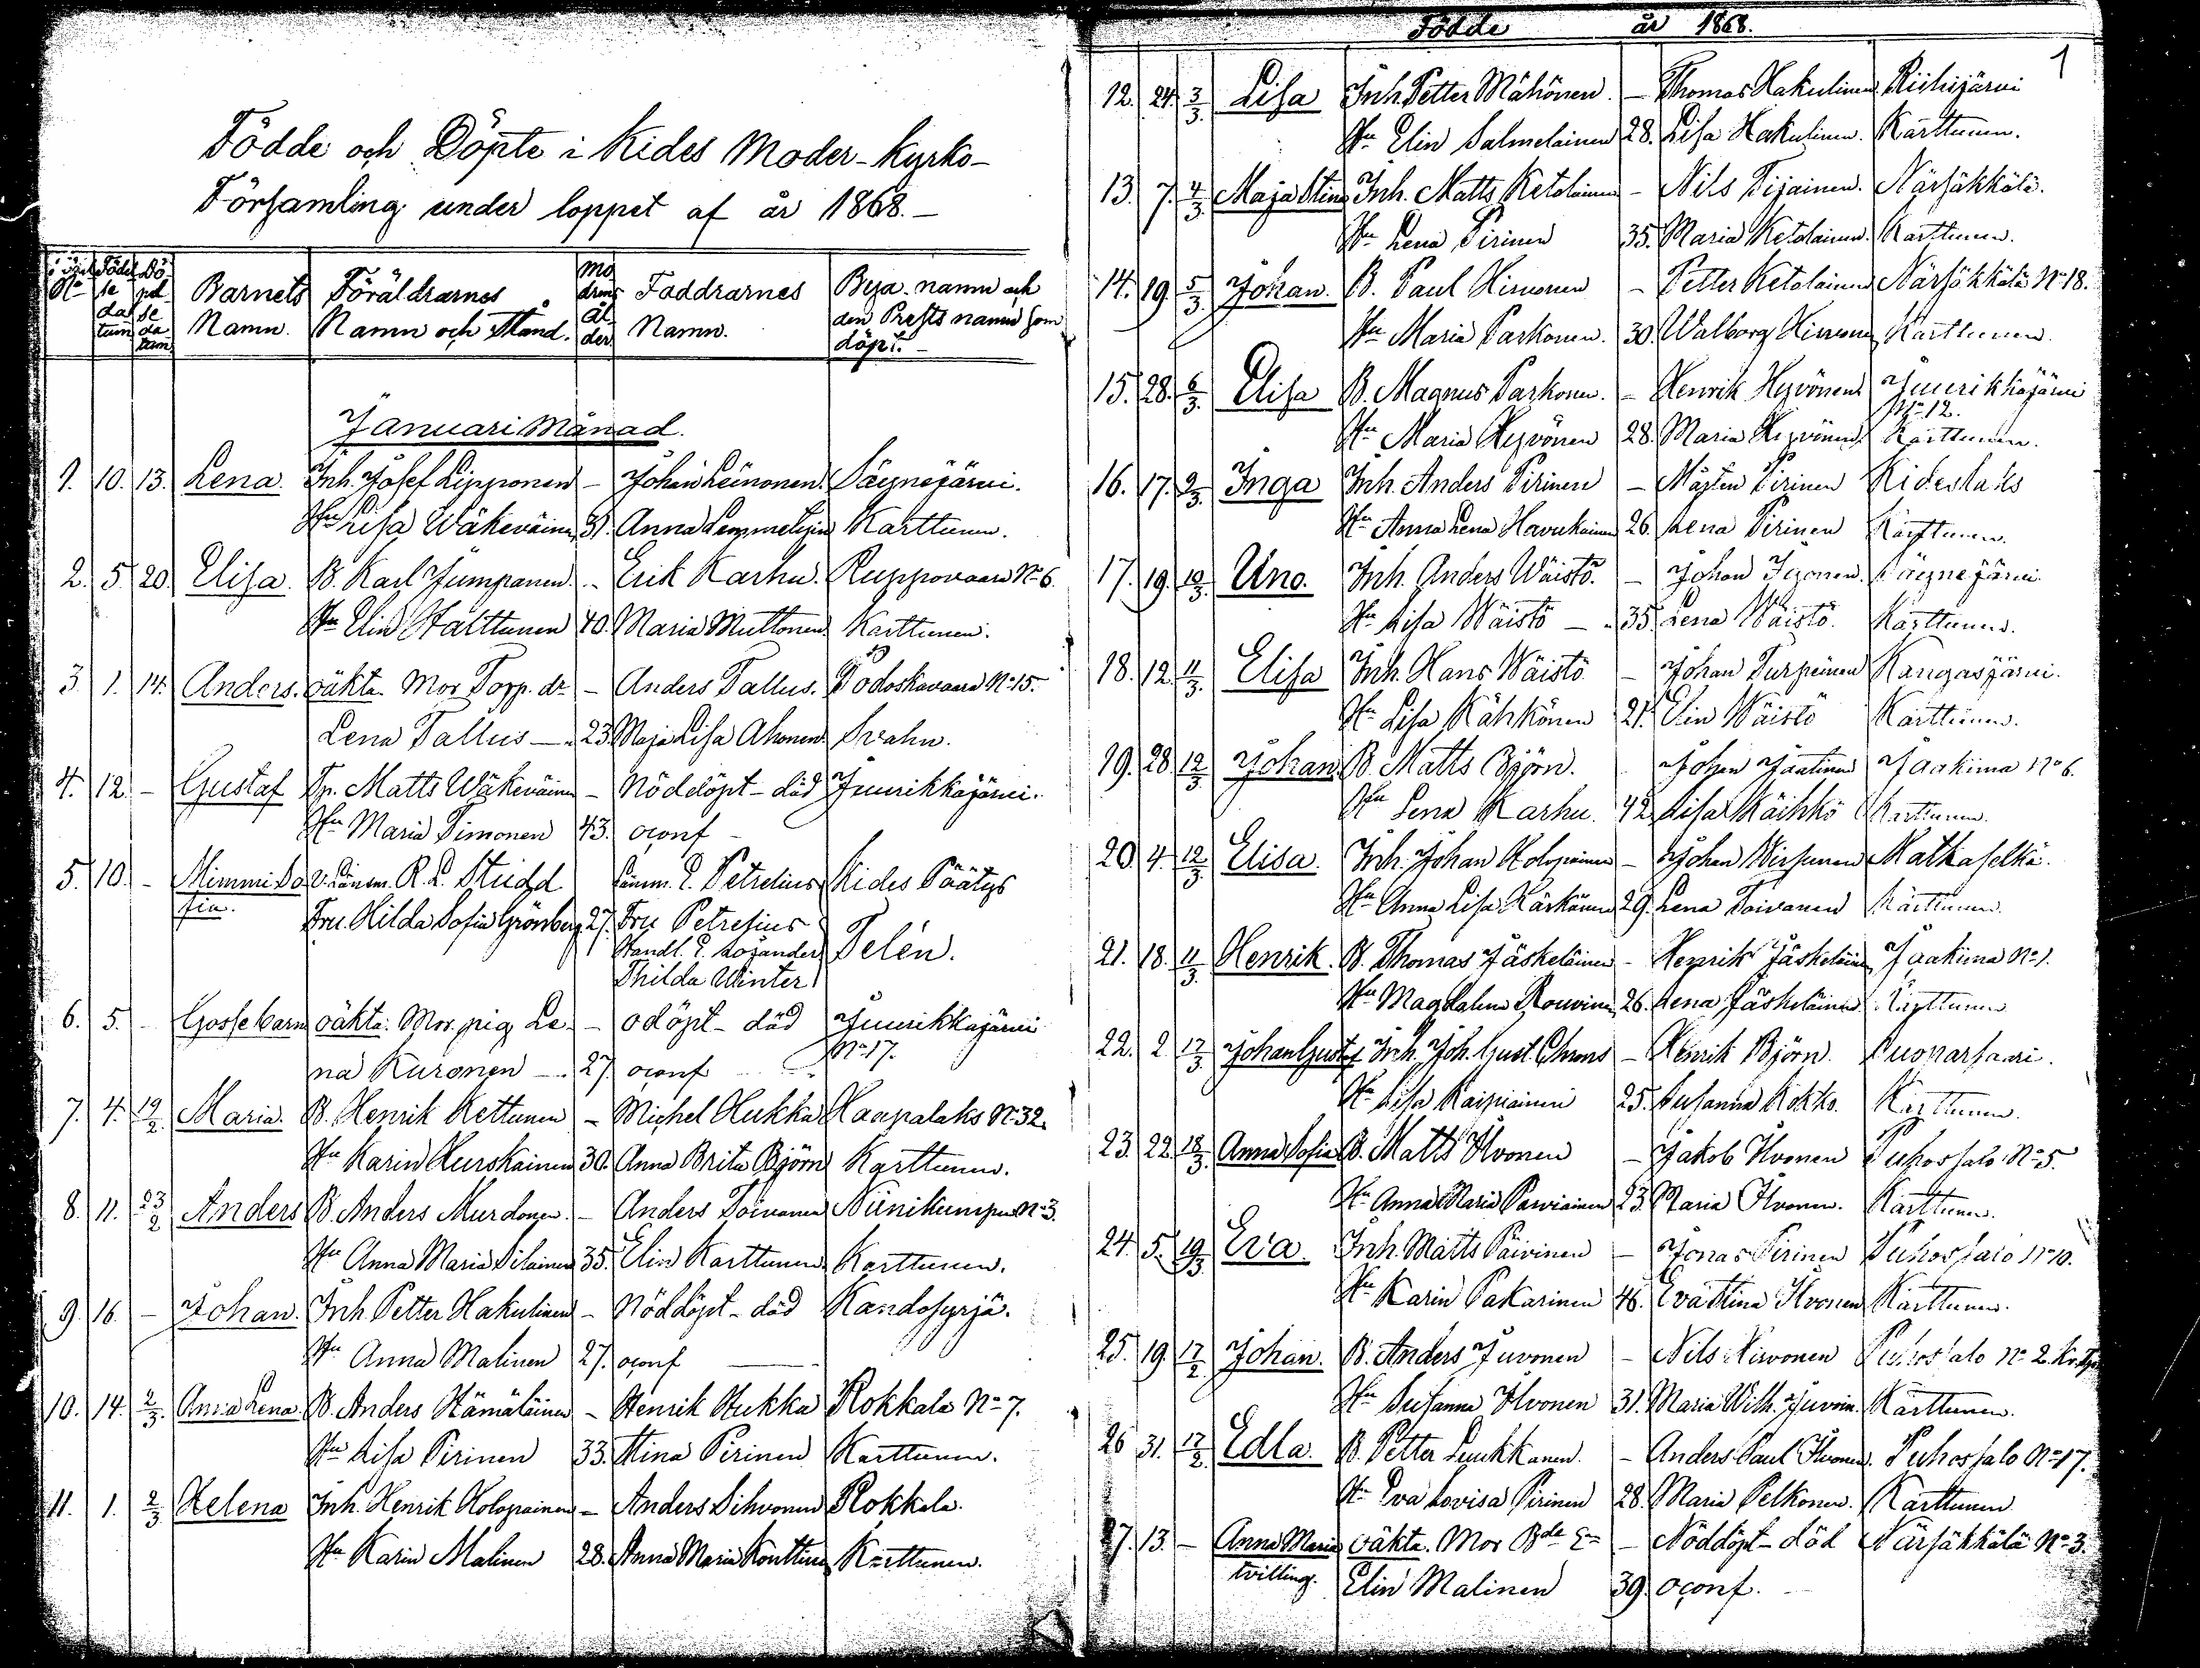 Födde och Döpte i Kides Moder-Kyrko-
Församling under loppet af år 1868.—
Födel
se
da
tum
Dö-
pel
se
da
tum
Barnets
Namn.
Föräldrarnes
Namn och Stånd.
Mo
drens
ål
der
Faddrarnes
Namn.
Bya-namn och
den Prests namn som
döpt.—
Januari Månad.
1. 10. 13. Lena. Inh. Josef Lipponen – Johan Leinonen. Säynejärvi.
Hu Lisa Wäkeväinen 31. Anna Karttunen.
2. 5. 20. Elisa. B. Karl Jumpanen. – Erik Karhu. Ruppovaara No 6.
Hu Elin Halttunen 40. Maria Muttonen Karttunen.
3. 1. 14. Anders. oäkta. Mor Torp. dr – Anders Tallus. Podoskavaara No 15.
Lena Tallus — 23. Maja Lisa Ahonen Svahn.
4. 12. – Gustaf Tp. Matts Wäkeväinen – Nöddöpt – död Juurikkajärvi.
Hu Maria Simonen 43. oconf –
5. 10. – Mimmi So R. L. Länsm. E. Petrelius Kides Päätys
fia. Fru Hilda Sofia Grönberg 27. Fru Petrelius
Handl. Telén.
Thilda Winter
6. 5. – Gossebarn oäkta. Mor. pig. Le- – odöpt – död Juurikkajärvi
No 17.
na Kuronen — 27. oconf
7. 4. 19/2 Maria. B. Henrik Kettunen – Michel Hukka Haapalaks No 32.
Hu Karin Hurskainen 30. Anna Brita Björn Karttunen.
8. 11. 23/2 Anders B. Anders Murdonen. – Anders Toivanen Niinikumpu No 3.
Hu Anna Maria Silainen 35. Elin Karttunen Karttunen.
9. 16. – Johan. Inh. Petter Hakulinen – Nöddöpt – död Kandosyrjä.
Hu Anna Malinen 27. oconf —
10. 14. 2/3 Anna Lena. B. Anders Hämäläinen – Henrik Hukka Rokkala No 7.
Hu Lisa Pirinen 33. Stina Pirinen Karttunen.
11. 1. 2/3 Helena Inh. Henrik Holopainen – Anders Sihvonen Rokkala.
Hu Karin Malinen 28. Anna Maria Konttinen Karttunen.
Födde år 1868.
1
12. 24. 3/3 Lisa Inh. Petter Mähönen. – Thomas Hakulinen Riihijärvi
Hu Elin Salmelainen 28. Lisa Hakulinen. Karttunen.
13. 7. 4/3 Maja Stina Inh. Matts Ketolainen – Nils Tijainen. Närsäkkälä.
Hu Lena Pirinen 35. Maria Ketolainen. Karttunen.
14. 19. 5/3 Johan. B. Paul Himonen – Petter Ketolainen Närsäkkälä No 18.
Hu Maria Parkonen. 30. Walborg Karttunen.
15. 28. 6/3 Elisa B. Magnus Parkonen. – Henrik Heyvönen Juurikkajärvi
No 12.
Hu Maria Heyvönen 28. Maria Heyvönen Karttunen.
16. 17. 9/3 Inga Inh. Anders Pirinen – Mårten Pirinen Kideslaks
Hu Anna Lena Havukainen 26. Lena Pirinen Karttunen.
17. 19. 10/3 Uno. Inh. Anders Wäistö. – Johan Säynejärvi.
Hu Lisa Wäistö – 35. Lena Wäistö. Karttunen.
18. 12. 11/3 Elisa Inh. Hans Wäistö – Johan Turpeinen Kangasjärvi.
Hu Lisa Kähkönen 21. Elin Wäistö Karttunen.
19. 28. 12/3 Johan. B. Matts Björn. Johan Jaatinen Jaakima No 6.
Hu Lena Karhu. 42. Lisa Käihkö Karttunen.
20. 4. 12/3 Elisa. Inh. Johan Holopainen – Johan Wirsunen Matkaselkä.
Hu Anna Lisa Kärkäinen 29. Lena Toivanen Karttunen.
21. 18. 11/3 Henrik. B. Thomas Jäskeläinen – Henrik Jäskeläinen Jaakima No 1.
Hu Magdalena Rouvinen 26. Lena Jäskeläinen Karttunen
22. 2. 17/3 Johan Gustaf Inh. Joh. Gust. – Henrik Björn. Suonarsaari.
Hu Lisa Kaipiainen 25. Susanna Kokko. Karttunen.
23. 22. 18/3 Anna Sofia B. Matts Ihvonen – Jakob Ihvonen Puhossalo No 5.
Hu Anna Maria Parviainen 23. Maria Ihvonen. Karttunen.
24. 5. 19/3 Eva. Inh. Matts Päivinen – Jonas Pirinen Puhossalo No 10.
Hu Karin Pakarinen 46. Eva Stina Ihvonen Karttunen.
25. 19. 17/2 Johan. B. Anders Juvonen – Nils Hirvonen Puhossalo No 2.
Hu Susanna Ihvonen 31. Maria Wilh. Juvonen. Karttunen.
26. 31. 17/2 Edla. B. Petter Leukkanen. – Anders Paul Ihvonen. Puhossalo No 17.
Hu Eva Lovisa Pirinen 28. Maria Pelkonen. Karttunen.
27. 13. – Anna Maria oäkta. Mor Bde – Nöddöpt – död Närsäkkälä No 3.
tvilling. Elin Malinen 39. oconf.